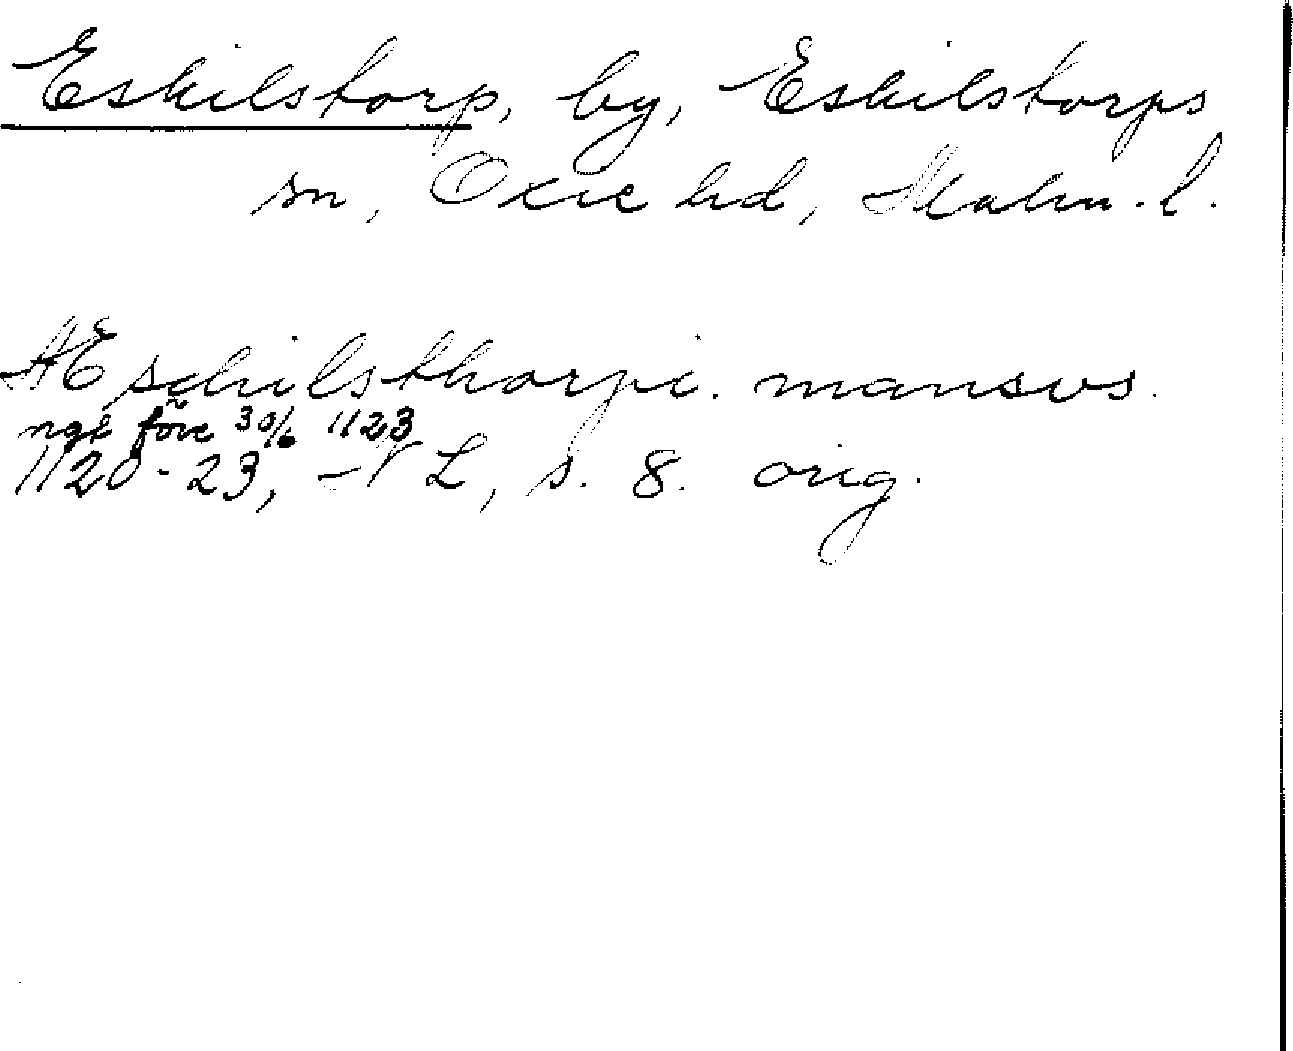 Eskilstorp, by, Eskilstorps
sn, Oxie hd, Malm. l.
AEschilsthorpi. mansus.
ngt före 30/6 1123
1120-23, NL, s. 8. orig.